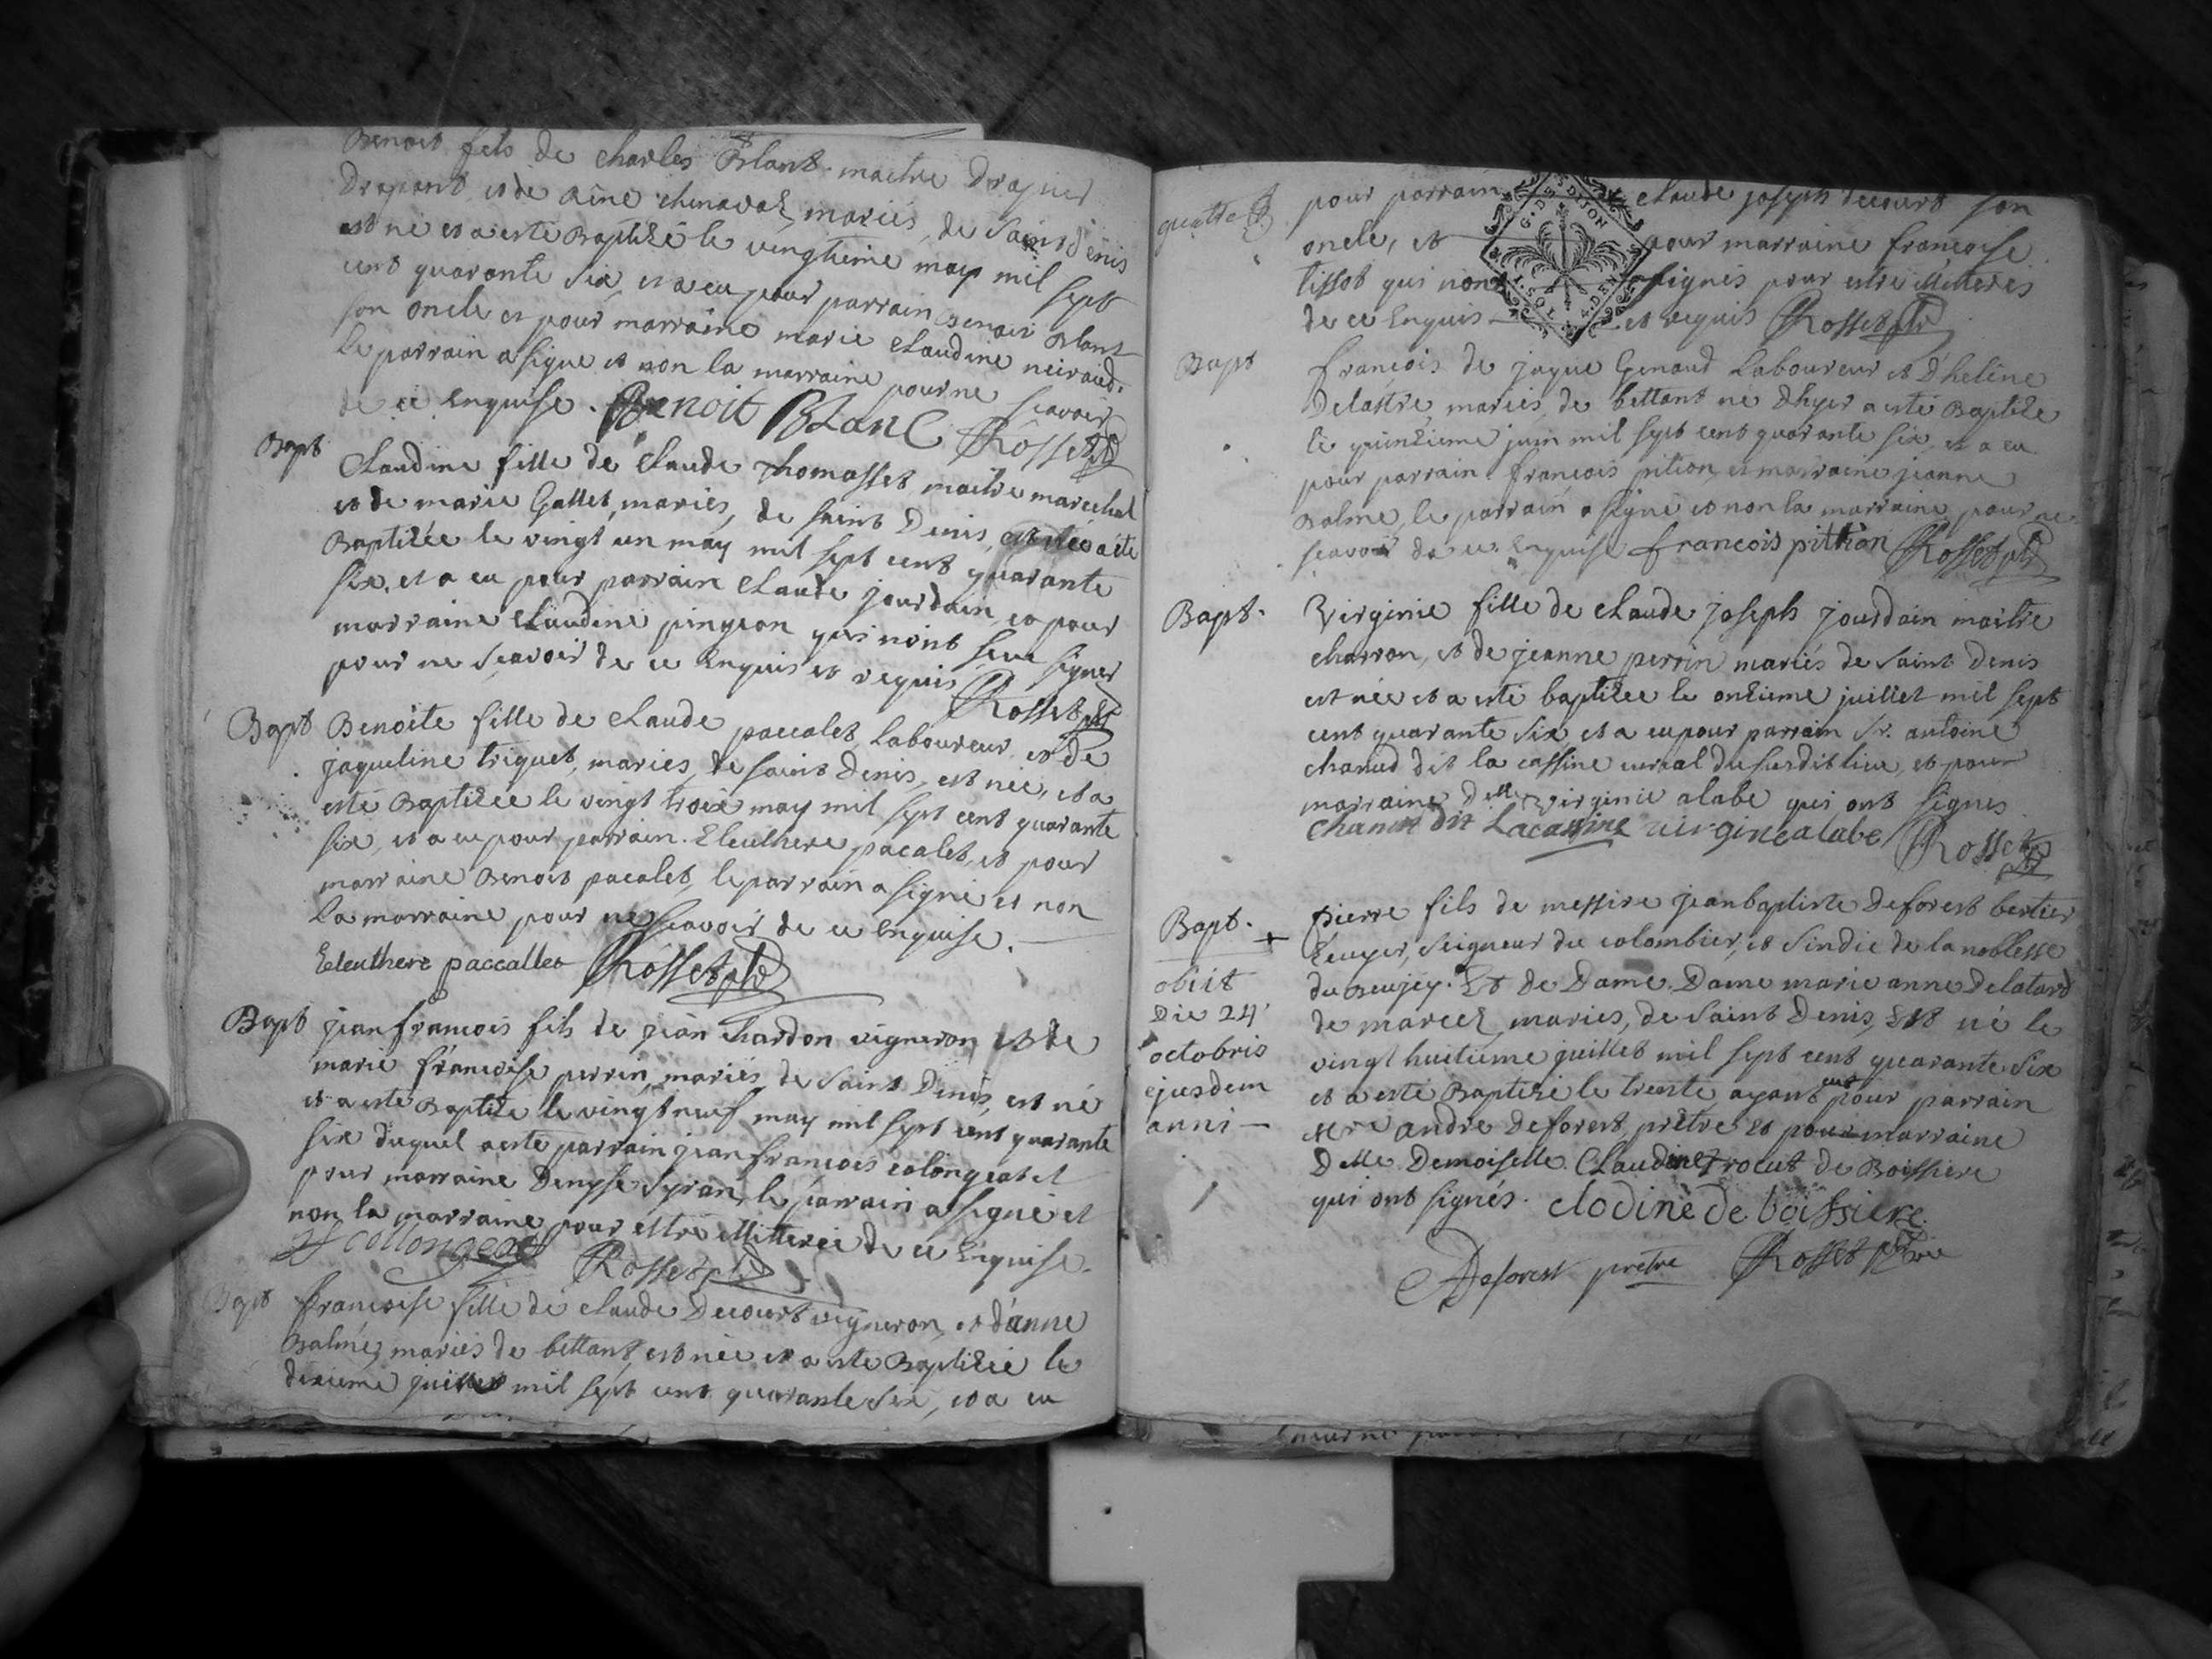 Benoit fils de charles Blant maitre Drapier
Drapant et de aine chenaval, mariés, de Saint denis
est né et a esté Baptizé le vingtieme may mil sept
cent quarante six, et a eu pour parrain Benoit Blant
son oncle et pour marraine marie claudine neiraud.
le parrain a signe et non la marraine pour ne scavoir
de ce Enquise. Benoit Blanc Rosset ptre
Bapt
Claudine fille de claude Thomasset maitre marechal
et de marie Gallet, mariés, de saint Denis, a été
Baptizée le vingt un may mil sept cent quarante
six, et a eu pour parrain claude jourdain, et pour
marraine claudine pingeon qui n'ont sceu signer
pour ne scavoir de ce Enquis et requis Rosset ptre
Bapt
Benoite fille de claude paccalet, Laboureur, et de
jaqueline triquet, mariés, de saint Denis, est née, et a
esté Baptizée le vingt trois may mil sept cent quarante
six, et a eu pour parrain. Eleuthere pacalet, et pour
marraine Benoit pacalet, le parrain a signé et non
la marraine pour ne scavoir de ce Enquise.
Eleuthere paccallet Rosset ptre
Bapt
jean francois fils de jean chardon vigneron et de
marie francoise perrin, mariés de Saint Denis, est né
et a esté Baptizé le vingt neuf may mil sept cent quarante
six duquel a esté parrain jean francois colongeat et
pour marraine Denyse Syran, le parrain a signé et
non la marraine pour estre illitterée de ce Enquise.
collongeat Rosset ptre
Bapt
francoise fille de claude Decourt vigneron, et d'anne
Balme, mariés de bettant, est née et a esté Baptizée le
dixieme juillet mil sept cent quarante six, et a eu
quatre
pour parrain claude joseph decourt son
oncle, et pour marraine francoise
tissot qui n'ont signés pour estre illitterés
de ce Enquis et requis Rosset ptre
G. D E S D I J O N
Bapt
francois de jaque Genaud Laboureur et D'heléne
Delastre, mariés, de bettant né d'hyer a esté Baptize
le quinzieme juin mil sept cent quarante six, et a eu
pour parrain francois pition, et marraine jeanne
Balme, le parrain a signé et non la marraine pour ne
scavoir de ce Enquise francois pithion Rosset ptre
Bapt.
Virginie fille de claude joseph jourdain maitre
charron, et de jeanne perrin mariés de Saint Denis
est née et a esté baptizée le onzieme juillet mil sept
cent quarante six et a eu pour parrain Sr. antoine
chanud dit la cassine curial du susdit lieu, et pour
marraine Delle virginie alabe qui ont signés
chanud dit Lacassine virginealabe Rosset ptre
Bapt. +
pierre fils de messire jean baptiste Deforest bertier
Ecuyer, Seigneur du colombier, et Sindic de la noblesse
du Beujey. Et de Dame. Dame marie anne Delatard
de marcel, mariés, de Saint Denis, Est né le
vingt huitieme juillet mil sept cent quarante six
et a esté Baptizé le trente ayant eut pour parrain
Mre andre Deforest, prêtre et pour marraine
Delle. Demoiselle. Claudine Trocut de Boissiere
qui ont signés. clodine de boissiere
Deforest pretre Rosset ptre
obiit
Die 24
octobris
ejusdem
anni —